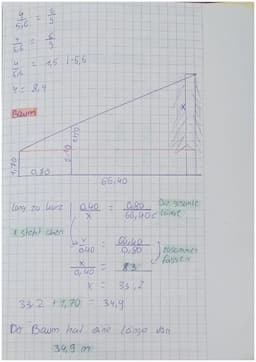 4/5,6 = 6/9
y/5,6 = 6/3
y/5,6 = 1,5 | · 5,6
y = 8,4
Baum
x
1,70
2,10
0,80
66,40
0,40/x = 0,80/66,40 Die gesamte Länge
x steht oben
x/0,40 = 66,40/0,80
zusammen fassen
x/0,40 = 83
x = 33,2
33,2 + 1,70 = 34,9
Der Baum hat eine Länge von
34,9 m